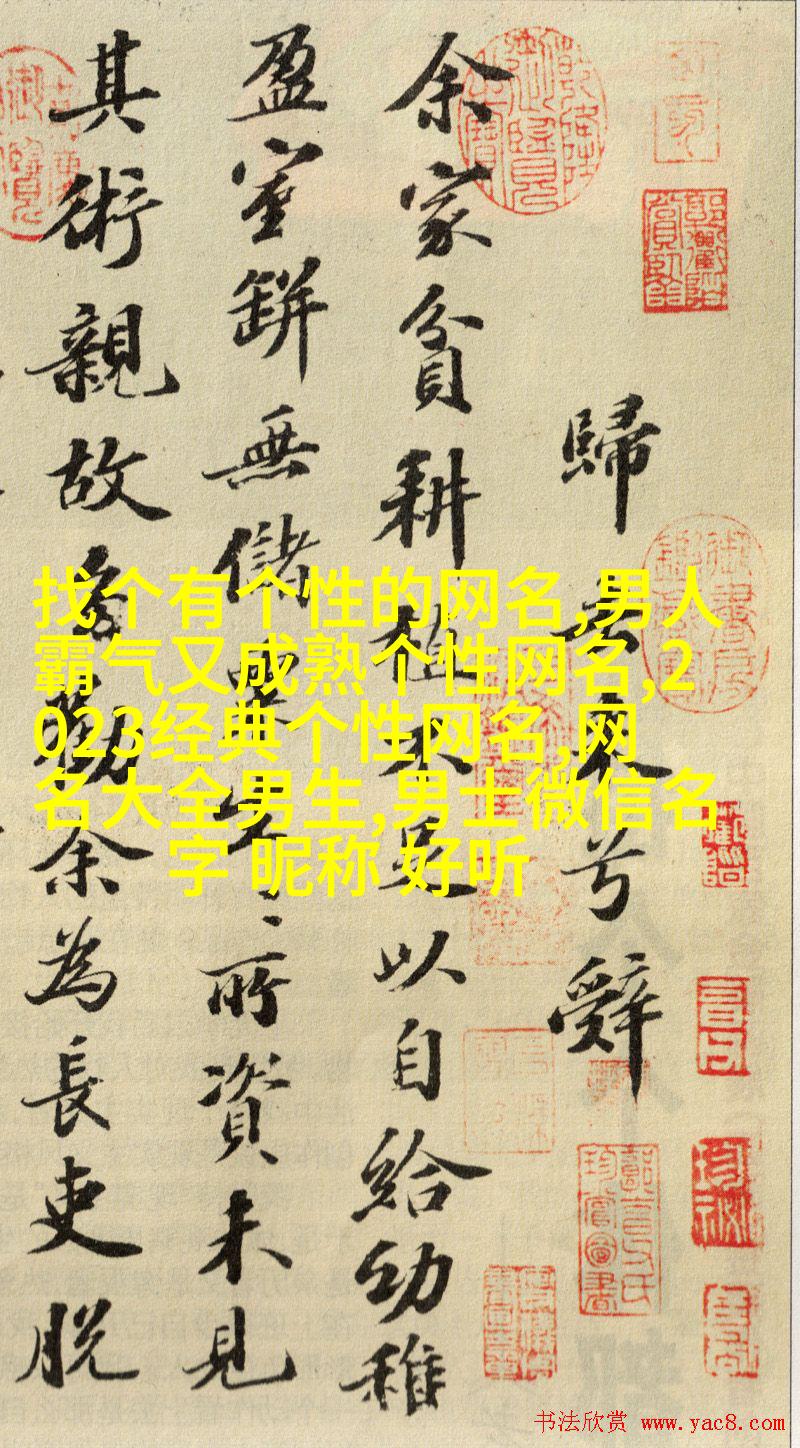 歸去來兮辭
余家貧耕植不足以自給幼稚
盈室缾無儲粟生〻所資未見
其術親故多勸余為長吏脫
找个有个性的网名,男人
霸气又成熟个性网名,2
023经典个性网名,网
名大全男生,男士微信名
字 昵称 好听
书法欣赏 www.yac8.com